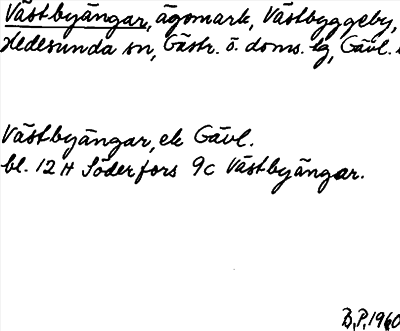 Västbyängar, ägomark, Västbyggeby,
Hedesunda sn, Gästr. ö. doms. lg, Gävl.
Västbyängar, ek Gävl.
bl. 12 H Söderfors 9c Västbyängar.
B.P. 1960